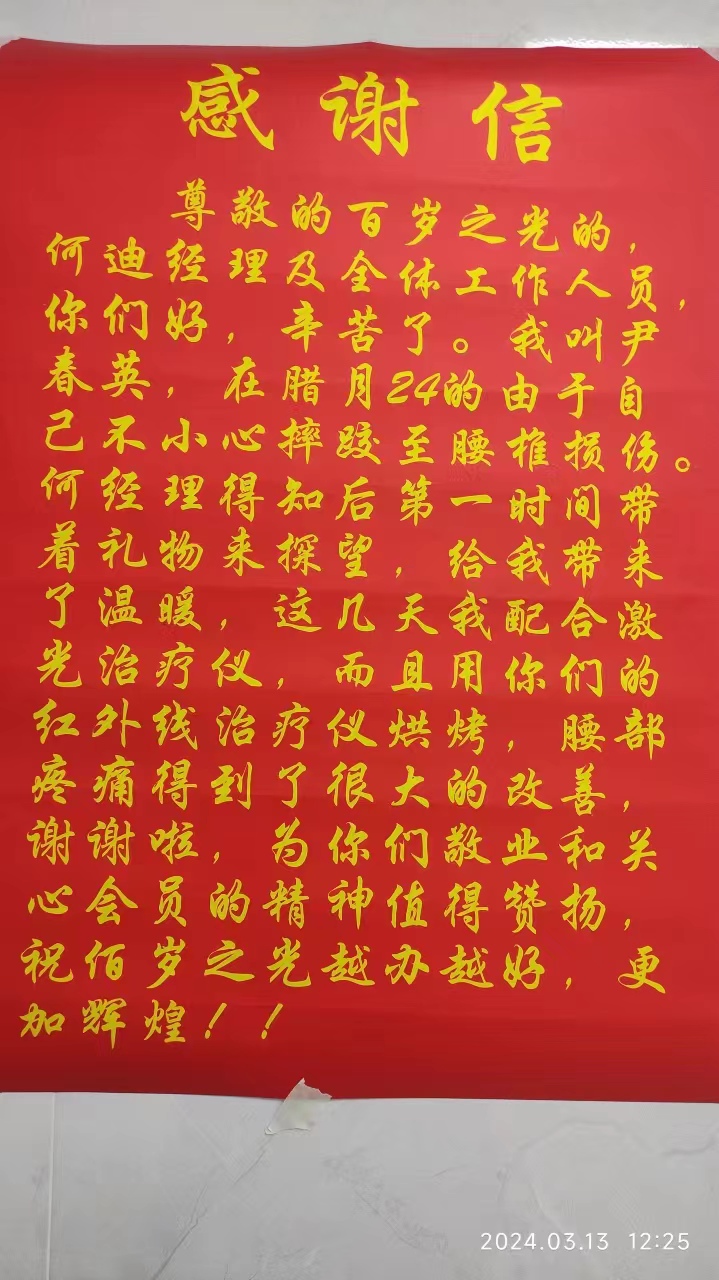 感谢信
尊敬的百岁之光的，
何迪经理及全体工作人员，
你们好，辛苦了。我叫尹
春英，在腊月24的由于自
己不小心摔跤至腰椎损伤。
何经理得知后第一时间带
着礼物来探望，给我带来
了温暖，这几天我配合激
光治疗仪，而且用你们的
红外线治疗仪烘烤，腰部
疼痛得到了很大的改善，
谢谢啦，为你们敬业和关
心会员的精神值得赞扬，
祝佰岁之光越办越好，更
加辉煌！！
2024.03.13 12:25